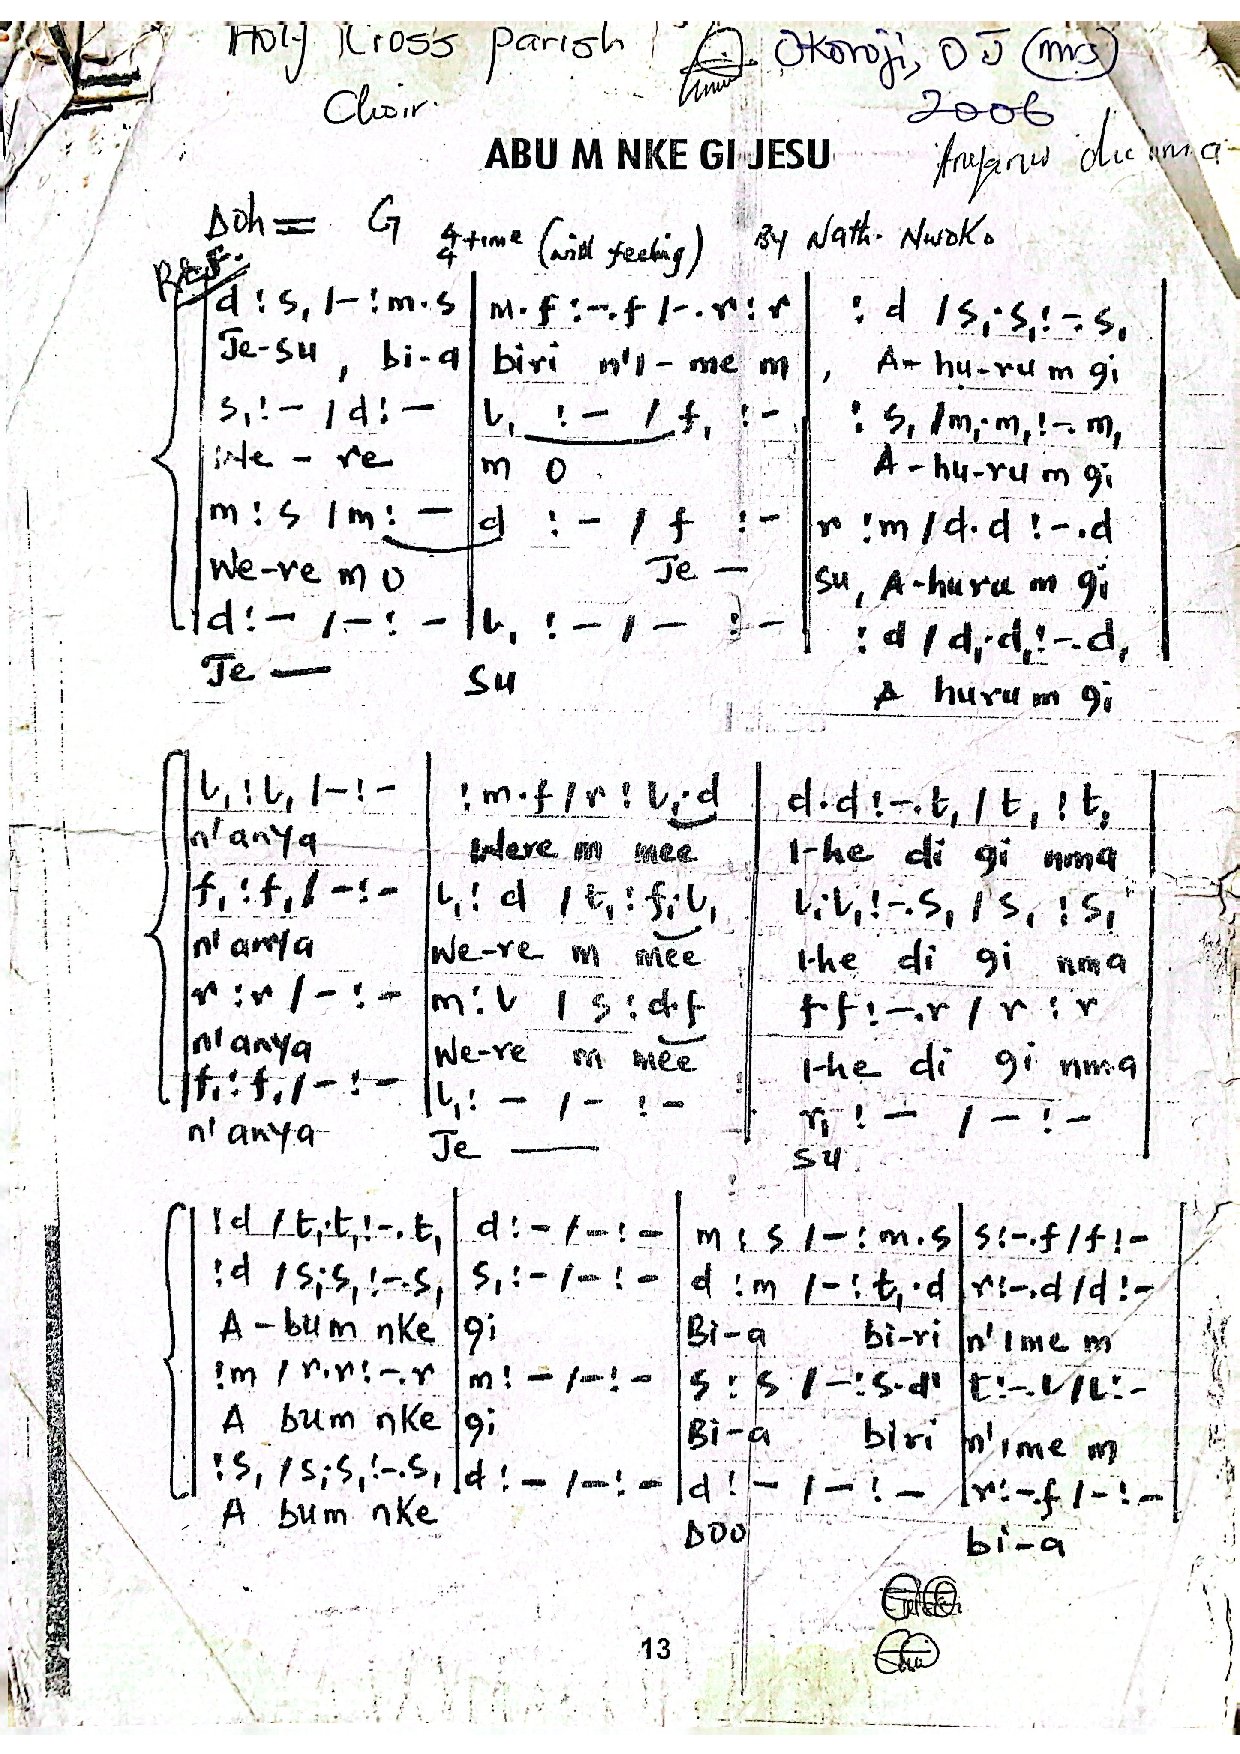 Holy Kross Parish Okoroji, O J (Mrs)
Choir. 2006
ABU M NKE GI JESU
Doh = G 4/4 time (with feeling) By Nath. Nwoko
Ref.
d : s, / - : m . s | m . f : - . f / - . r : r | : d / s, . s, : - . s,
Je-su , bi-a biri n'I-me m , A-hu-ru m gi
s, : - / d : - | l, : - / f, : - | : s, / m, . m, : - . m,
We - re m o A-hu-ru m gi
m : s / m : - | d : - / f : - | r : m / d . d : - . d
We-re m o Je - su, A-huru m gi
d : - / - : - | l, : - / - : - | : d / d, . d, : - . d,
Je — su A huru m gi
l, : l, / - : - | : m . f / r : l, . d | d . d : - . t, / t, : t,
n'anya Were m mee I-he di gi nma
f, : f, / - : - | l, : d / t, : f, . l, | l, . l, : - . s, / s, : s,
n'anya We-re m mee I-he di gi nma
r : r / - : - | m : l / s : d . f | f . f : - . r / r : r
n'anya We-re m mee I-he di gi nma
f, : f, / - : - | l, : - / - : - | r, : - / - : -
n'anya Je — su
: d / t, . t, : - . t, | d : - / - : - | m : s / - : m . s | s : - . f / f : -
: d / s, . s, : - . s, | s, : - / - : - | d : m / - : t, . d | r : - . d / d : -
A-bu m nke gi Bi-a bi-ri n'Ime m
: m / r . r : - . r | m : - / - : - | s : s / - : s . d' | t : - . l / l : -
A bu m nke gi Bi-a biri n'Ime m
: s, / s, . s, : - . s, | d : - / - : - | d : - / - : - | r : - . f / - : -
A bu m nke Doo bi-a
13